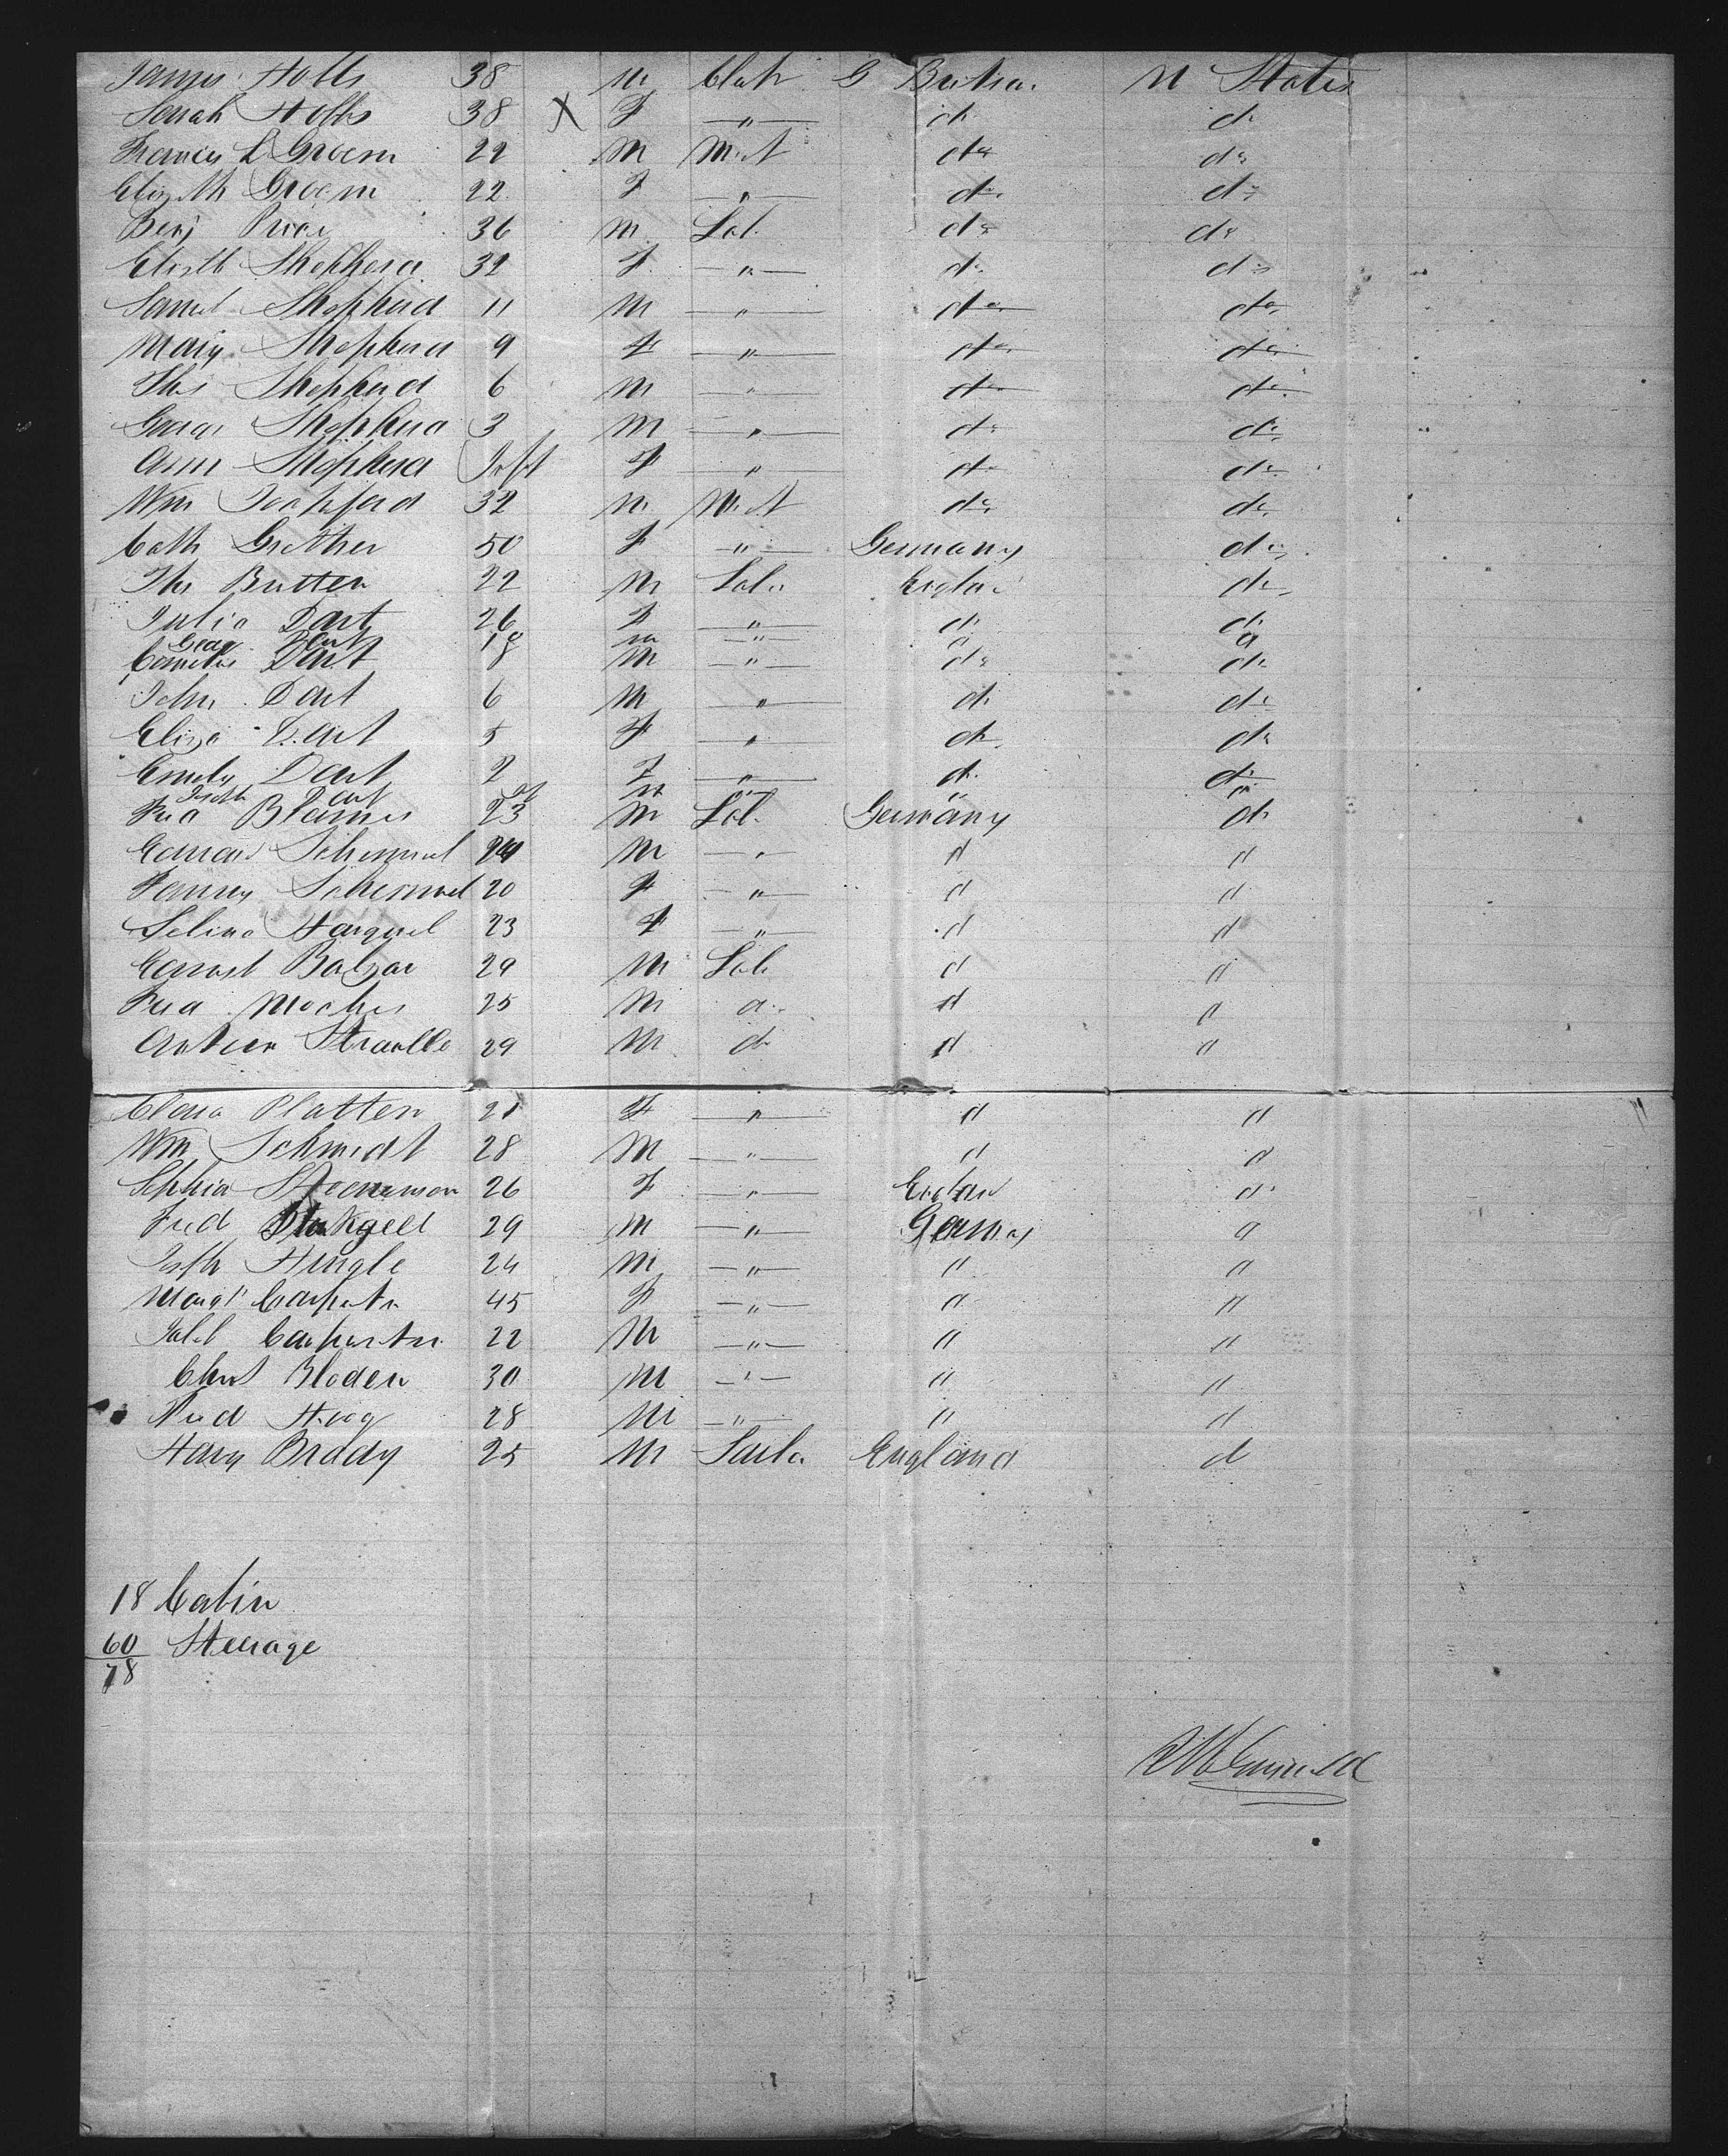 James Hobbs 38 M Clak G Britain U States
Sarah Hobbs 38 X F " do do
Francis L Groem 22 M Mcht do do
Elizth Groem 22 F " do do
Benj Price 36 M Lab do do
Elizth Shepherd 32 F " do do
Samuel Shepherd 11 M " do do
Mary Shepherd 9 F " do do
Thos Shepherd 6 M " do do
George Shepherd 3 M " do do
Ann Shepherd Inft F " do do
Wm 32 M Mcht do do
Cath Grether 50 F " Germany do
Thos Butter 22 M Labr England do
Julia Dart 26 F " do do
Geo Dart 18 m " d d
Cornelius Dart 8 M " do do
John Dart 6 M " do do
Eliza Dart 5 F " do do
Emily Dart 2 F " do do
Dart m " " "
Fred 23 M Lab Germany do
Conrad Schemmel M " d d
Fanny Schemmel 20 F " d d
Selina 23 F " d d
Ernest Balzar 29 M Lab d d
Fred Moches 25 M d d d
29 M do d d
Clara Platten 21 F " d d
Wm Schmidt 28 M " d d
Sophia 26 F " England d
Fred 29 M " Germany d
Josph Hingle 24 M " d d
Margt Carpenter 45 F " d d
Carpenter 22 M " d d
Christ Bloden 30 M " d d
Fred Haag 28 M " d d
Harry Brady 25 M Sailor England d
18 Cabin
60 Steerage
78